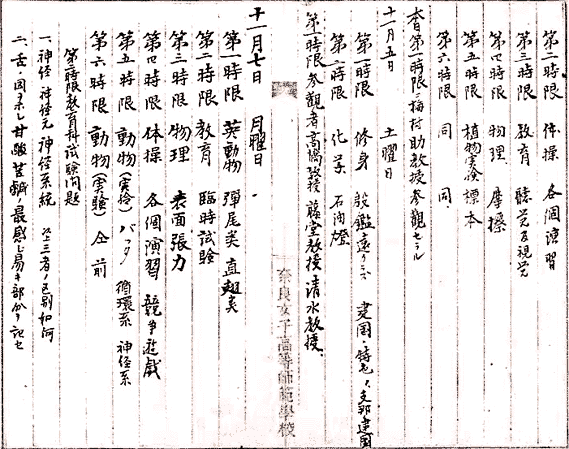 第二時限 体操 各個演習
第三時限 教育 聴覚及視覚
第四時限 物理 摩擦
第五時限 植物実験 標本
第六時限 同 同
本日第一時限ニ梅村助教授参観セラル
十一月五日 土曜日
第一時限 修身 殷鑑遠カラズ 建国 支那建国
第二時限 化学 石油燈
第一時限参観者高橋教授 藤堂教授 清水教授
奈良女子高等師範學校
十一月七日 月曜日
第一時限 動物 弾尾類 直翅類
第二時限 教育 臨時試験
第三時限 物理 表面張力
第四時限 体操 各個演習 競争遊戯
第五時限 動物(実験) バッタ 循環系 神経系
第六時限 動物(実験) 仝前
第二時限教育科試験問題
一、神経 神経元 神経系統 三者ノ区別如何
二、舌ノ 甘酸苦鹹ノ最感ジ易キ部分ヲ記セ